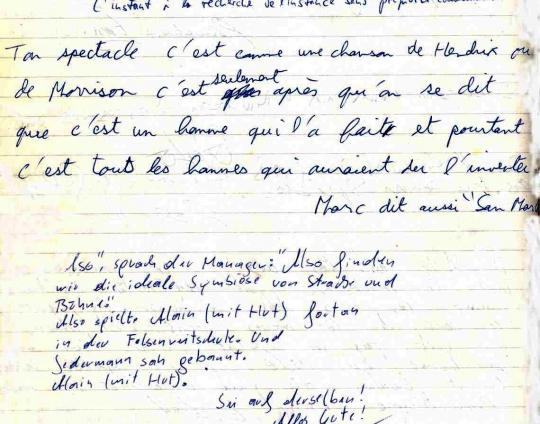 L'instant à la recherche de l'instance sans
Ton spectacle c'est comme une chanson de Hendrix ou
de Morrison c'est seulement après qu'on se dit
que c'est un homme qui l'a fait et pourtant
c'est tout les hommes qui auraient du l'inventer
Marc dit aussi "San Mar
Also", sprach der Manager: "Also finden
wir die ideale Symbiose von Strasse und
Bühne."
Also spielte Alain (mit Hut) fortan
in der Felsenreitschule. Und
Jedermann sah gebannt.
Alain (mit Hut).
Sei auf derselben!
Alles Gute!